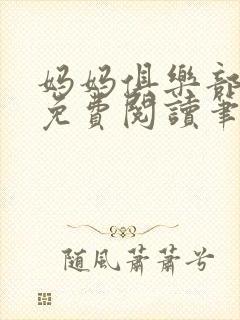 妈妈俱樂部
免費閱讀筆
随風蕭蕭兮